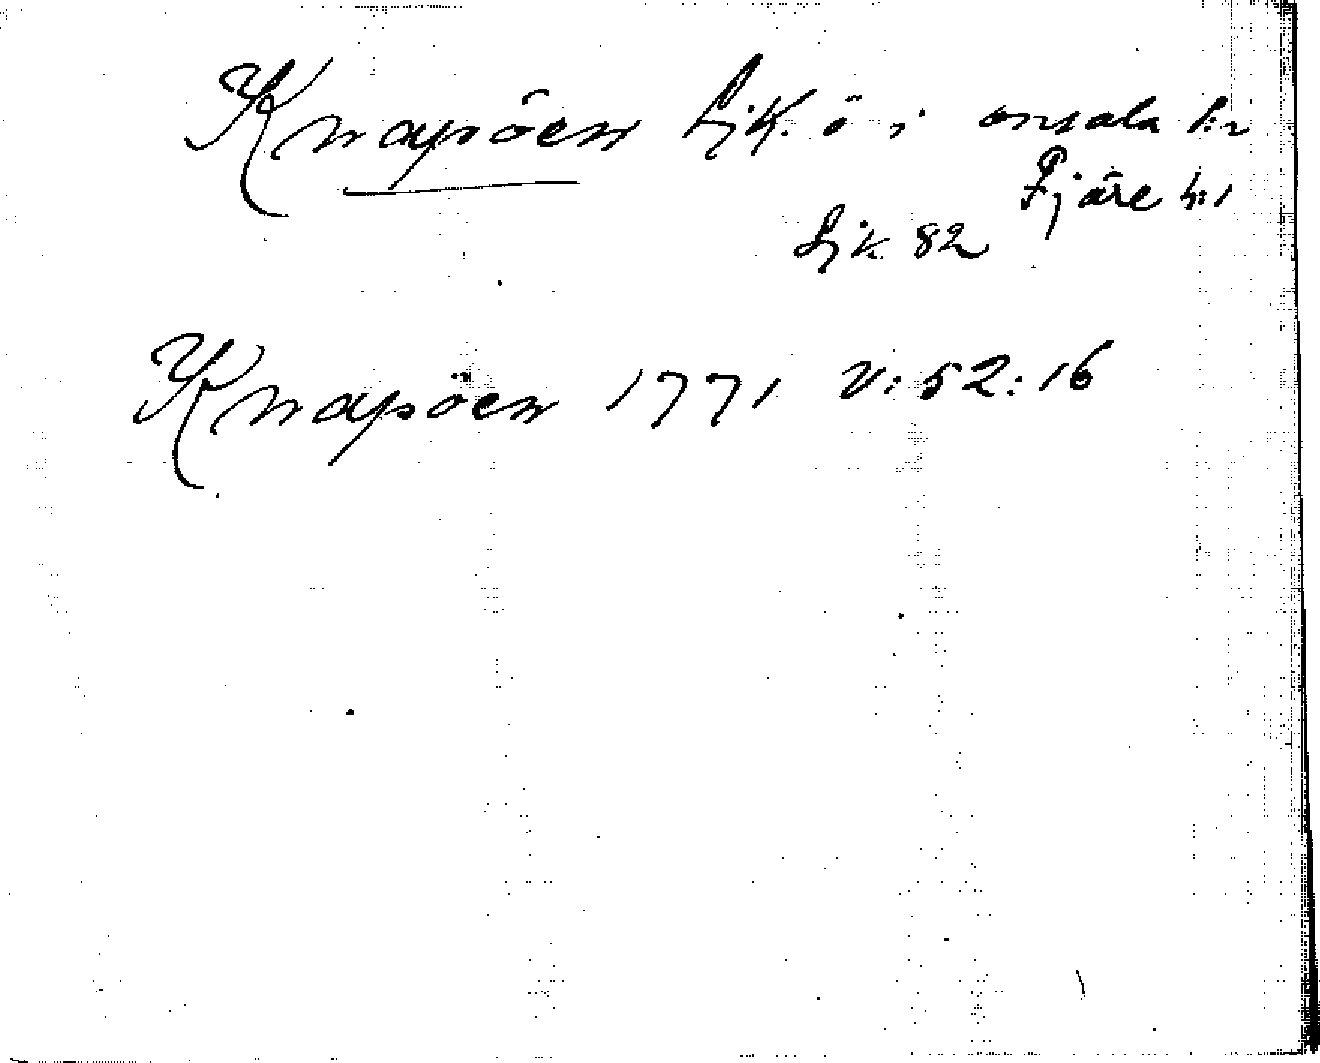 Knapöen Sjk. ö i onsala s:n
Fjäre h:d
Sjk. 82
Knapöen 1771 V:52:16